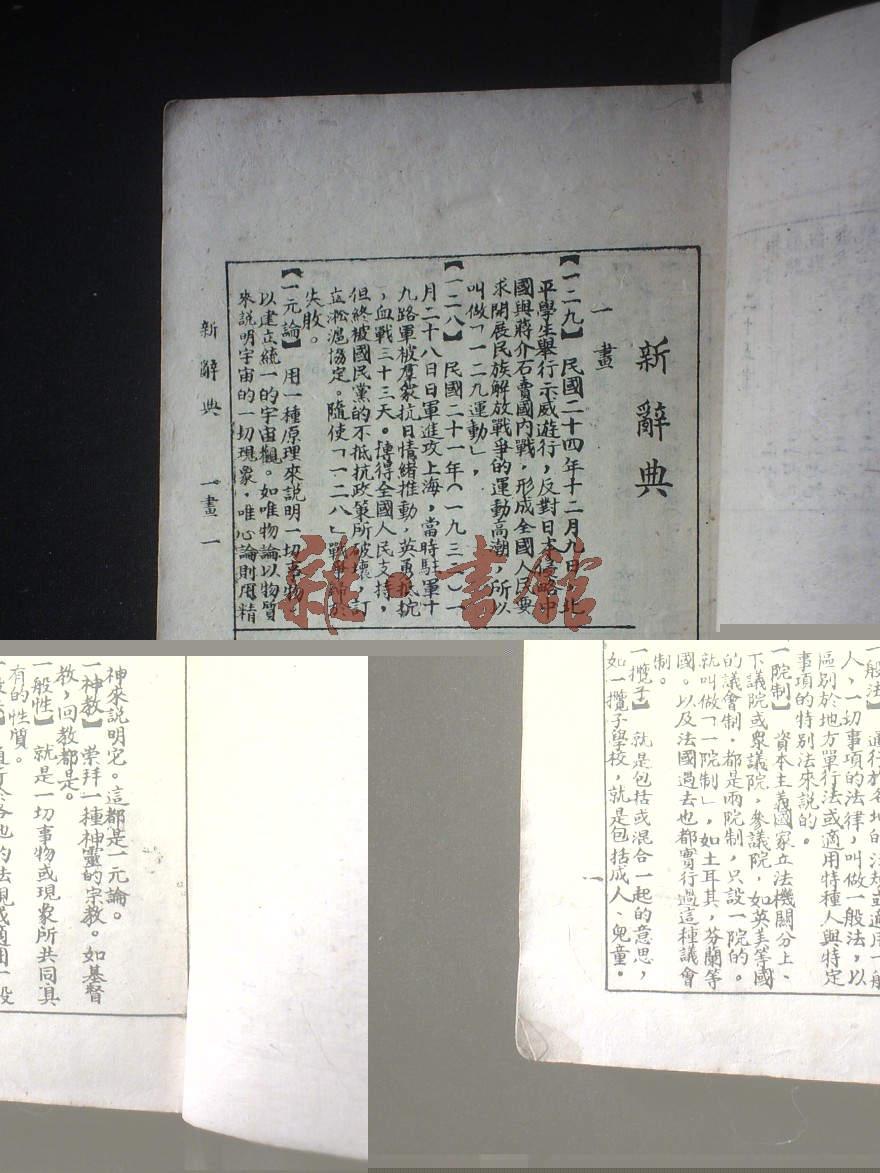 新辭典
一畫
【一二九】 民國二十四年十二月九日，北
平學生舉行示威遊行，反對日本侵略中
國與蔣介石賣國內戰，形成全國人民要
求開展民族解放戰爭的運動高潮，所以
叫做「一二九運動」，
【一二八】 民國二十一年（一九三二）一
月二十八日日軍進攻上海，當時駐軍十
九路軍被羣衆抗日情緒推動，英勇抵抗
，血戰三十三天。博得全國人民支持，
但終被國民黨的不抵抗政策所破壞，訂
立淞滬協定。隨使「一二八」戰爭終於
失敗。
【一元論】 用一種原理來説明一切事物，
以建立統一的宇宙觀。如唯物論以物質
來説明宇宙的一切現象，唯心論則用精
新辭典 一畫 一
神來説明宅。這都是一元論。
一神教】 崇拜一種神靈的宗教。如基督
教，回教都是。
一般性】 就是一切事物或現象所共同具
有的性質。
一般法】 通行於各地的法規或適用一般
人，一切事項的法律，叫做一般法，以
區别於地方單行法或適用特種人與特定
事項的特别法來説的。
一院制】 資本主義國家立法機關分上、
下議院或衆議院，參議院，如英美等國
的議會制，都是兩院制，只設一院的。
就叫做「一院制」，如土耳其，芬蘭等
國。以及法國過去也都實行過這種議會
制。
一攬子】 就是包括或混合一起的意思，
如一攬子學校，就是包括成人、兒童。
一
雜·書館